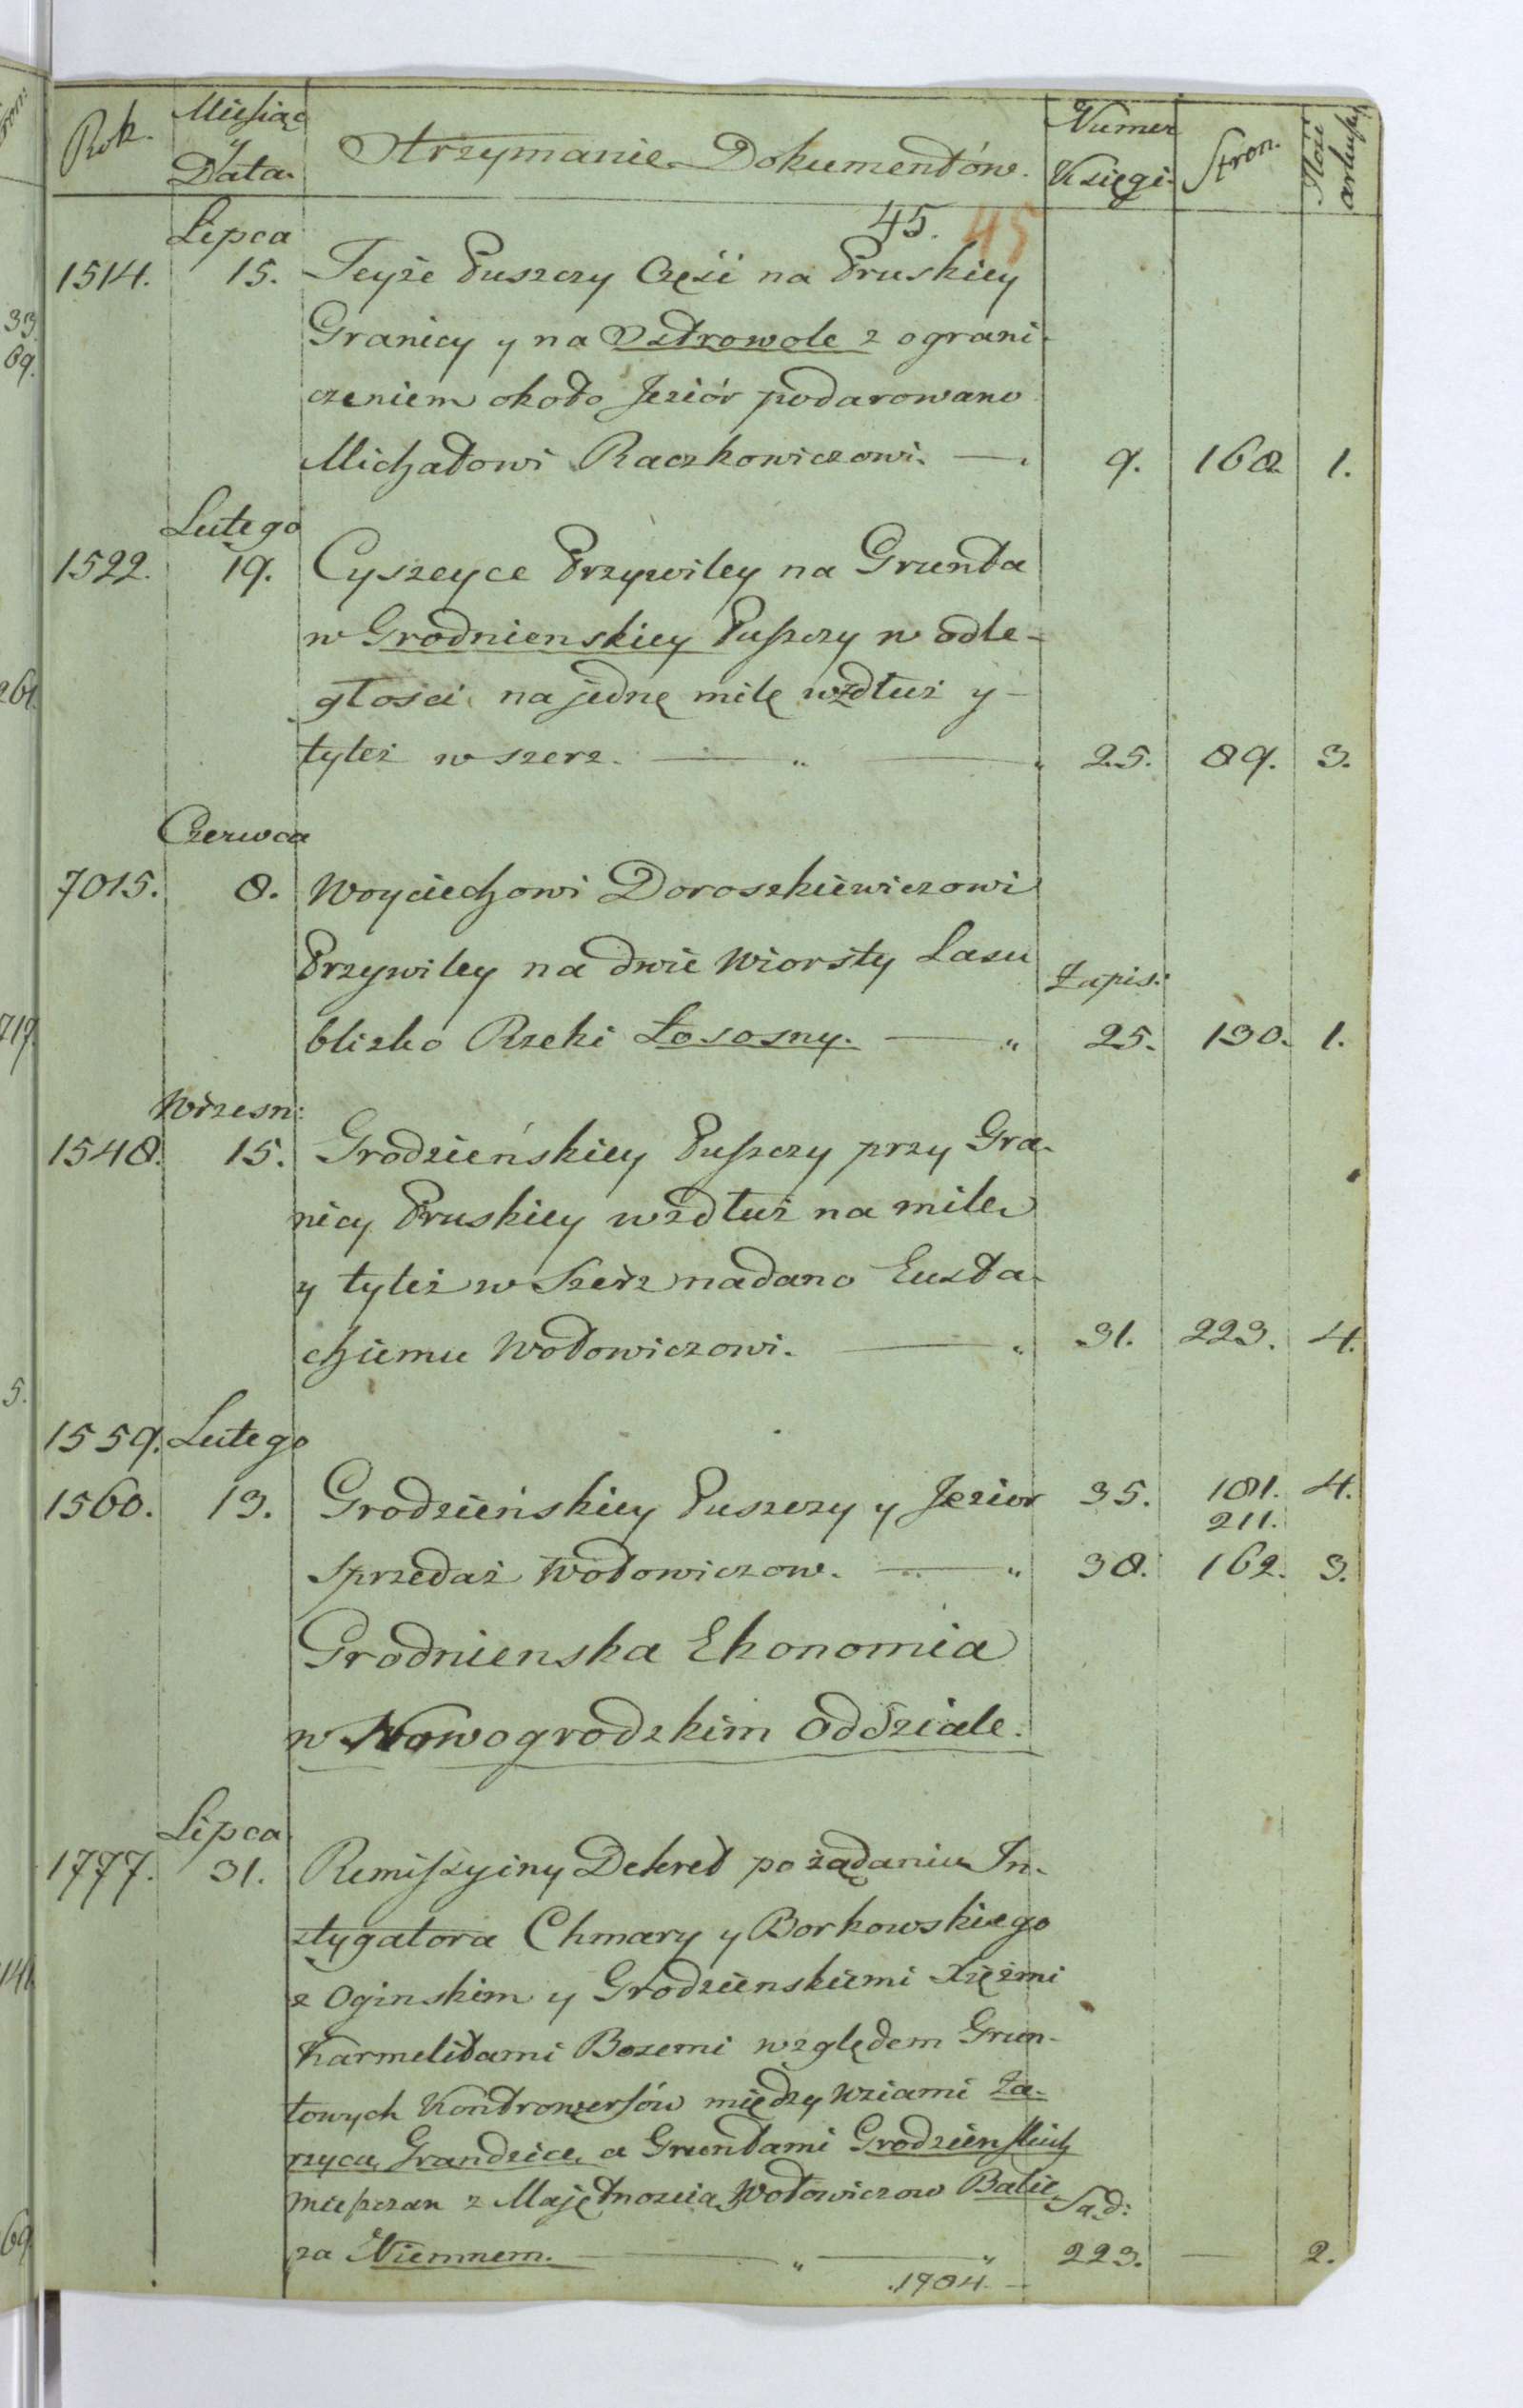 Rok. Miesiąc y Data. Otrzymanie Dokumentów. Numer Księgi. Stron. Ilość arkuszy
45. 45
Lipca
1514. 15. Teyże Puszczy Część na Pruskiey
Granicy y na Ostrowole z ograni-
czeniem około Jeziór podarowano
Michałowi Raczkowiczowi. — 9. 168 1.
Lutego
1522. 19. Cyszeyce Przywiley na Grunta
w Grodnienskiey Puszczy w odle-
głości na jednę milę wzdłuż y
tyleż w szerz. — „ — „ 25. 89. 3.
Czerwca
7015. 8. Woyciechowi Doroszkiewiczowi
Przywiley na dwie Wiorsty Lasu
Zapis:
blizko Rzeki Łososny. — „ 25. 130. 1.
Wrzesn:
1548. 15. Grodzieńskiey Puszczy przy Gra-
nicy Pruskiey wzdłuż na milę
y tyleż w Szerz nadano Eusta-
chiemu Wołowiczowi. — „ 31. 223. 4.
1559. Lutego
1560. 13. Grodzieńskiey Puszczy y Jezior 35. 181. 4.
211.
sprzedaż Wołowiczow. — „ 38. 162. 3.
Grodnienska Ekonomia
w Nowogrodzkim Oddziale.
Lipca
1777. 31. Remissyiny Dekret po żądaniu In-
stygatora Chmary y Borkowskiego
z Oginskim y Grodzienskiemi Xiężmi
Karmelitami Bosemi względem Grun-
towych Kontrowersów między Wsiami Za-
rzyca, Grandzice, a Gruntami Grodzienskich
mieszczan z Majętnoscią Wołowiczow Balie
Sąd:
za Niemnem. — „ — „ 223. — 2.
1984.